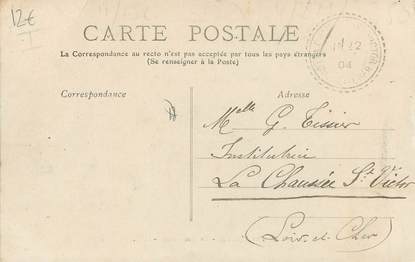 12€
CARTE POSTALE
La Correspondance au recto n'est pas acceptée par tous les pays étrangers
(Se renseigner à la Poste)
Correspondance
Adresse
12
04
Melle G. Tissier
Institutrice
La Chaussée St Victor
(Loir-et-Cher)